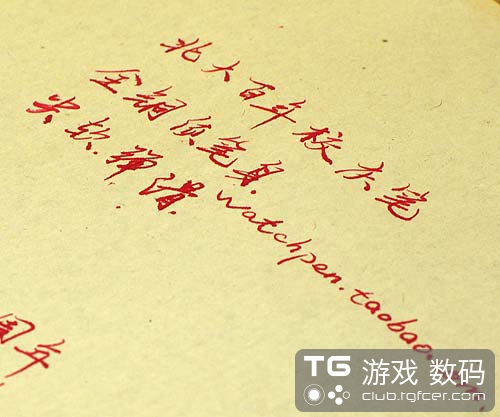 北大百年校庆笔
全铜质笔身.watchpen.taobao.com.
尖软.弹滑.
周年
TG 游戏 数码
club.tgfcer.com